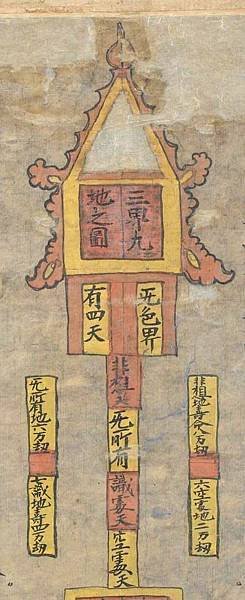 三界九
地之圖
无色界
有四天
非想
无所有
識處天
空處天
非想地壽八万劫
六空處地二万劫
无所有地六万劫
七識地壽四万劫